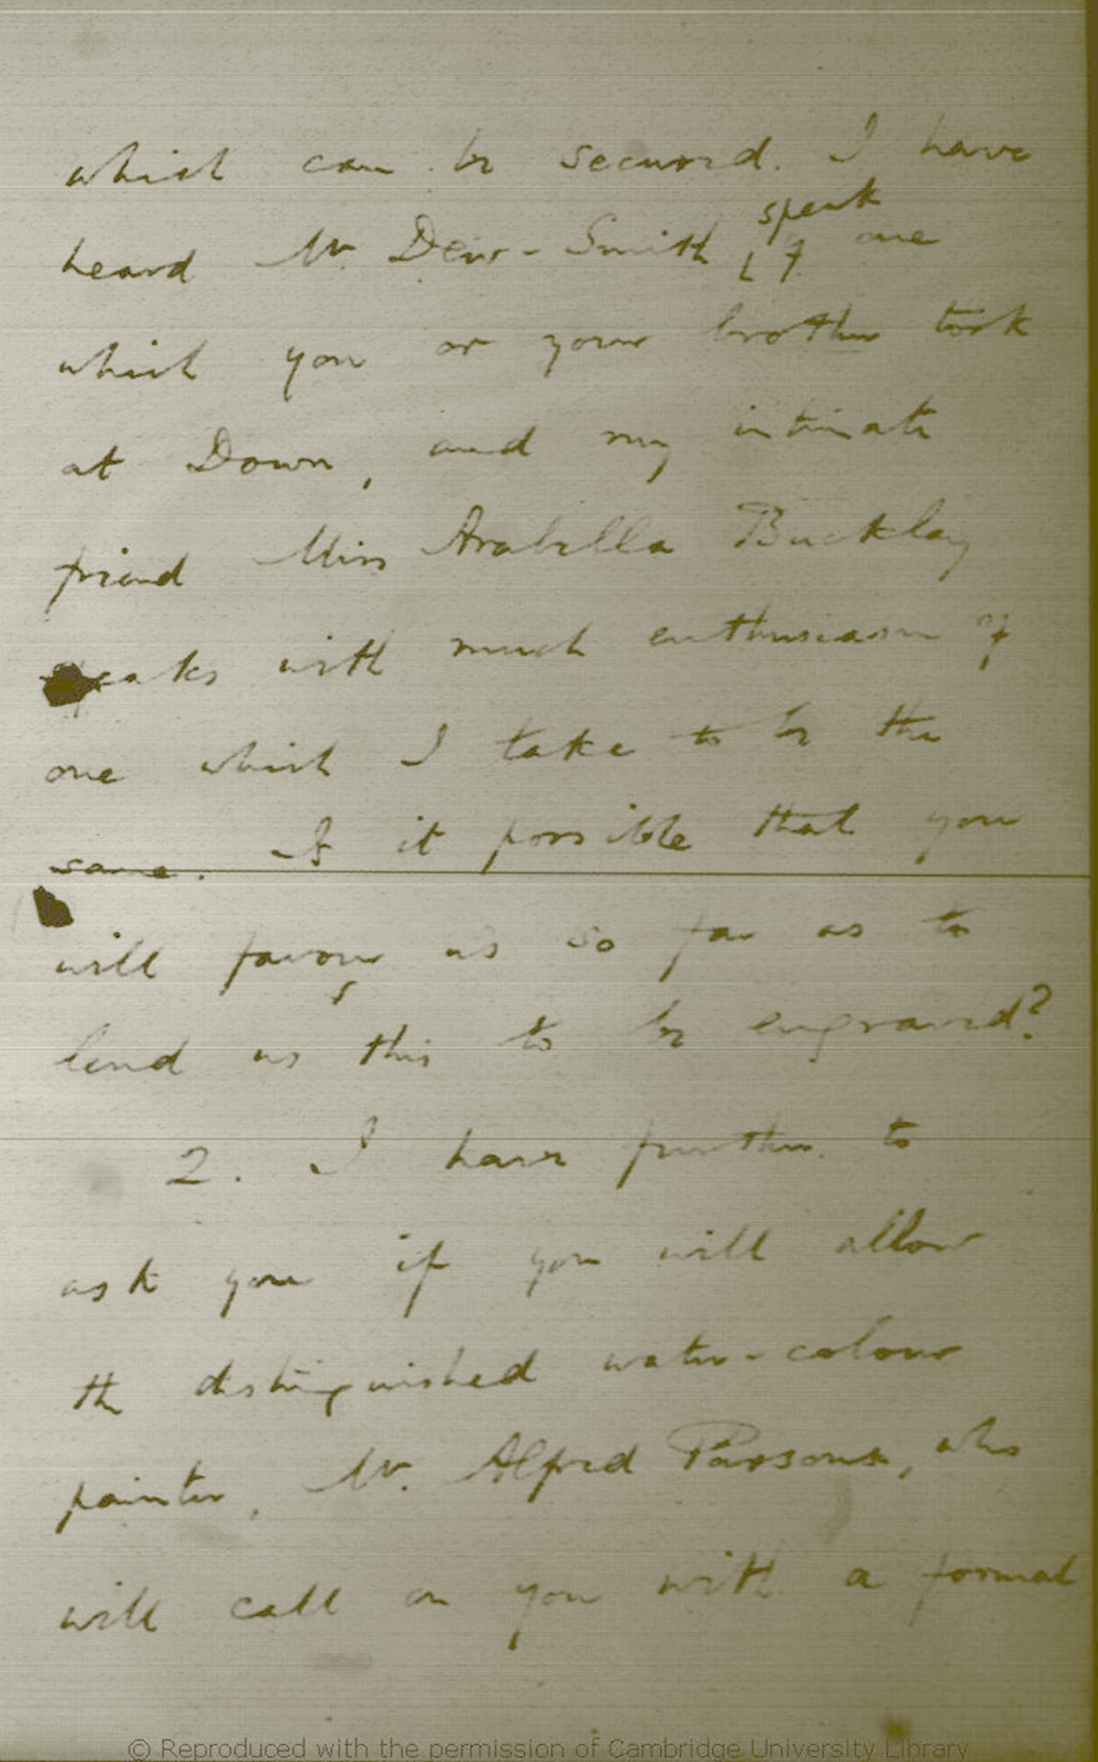 which can be secured. I have
heard Mr. Dew-Smith speak of one
which you or your brother took
at Down, and my intimate
friend Miss Arabella Buckley
speaks with much enthusiasm of
one which I take to be the
same. Is it possible that you
will favour us so far as to
lend us this to be engraved?
2. I have further to
ask you if you will allow
the distinguished water-colour
painter, Mr. Alfred Parsons, who
will call on you with a formal
© Reproduced with the permission of Cambridge University Library